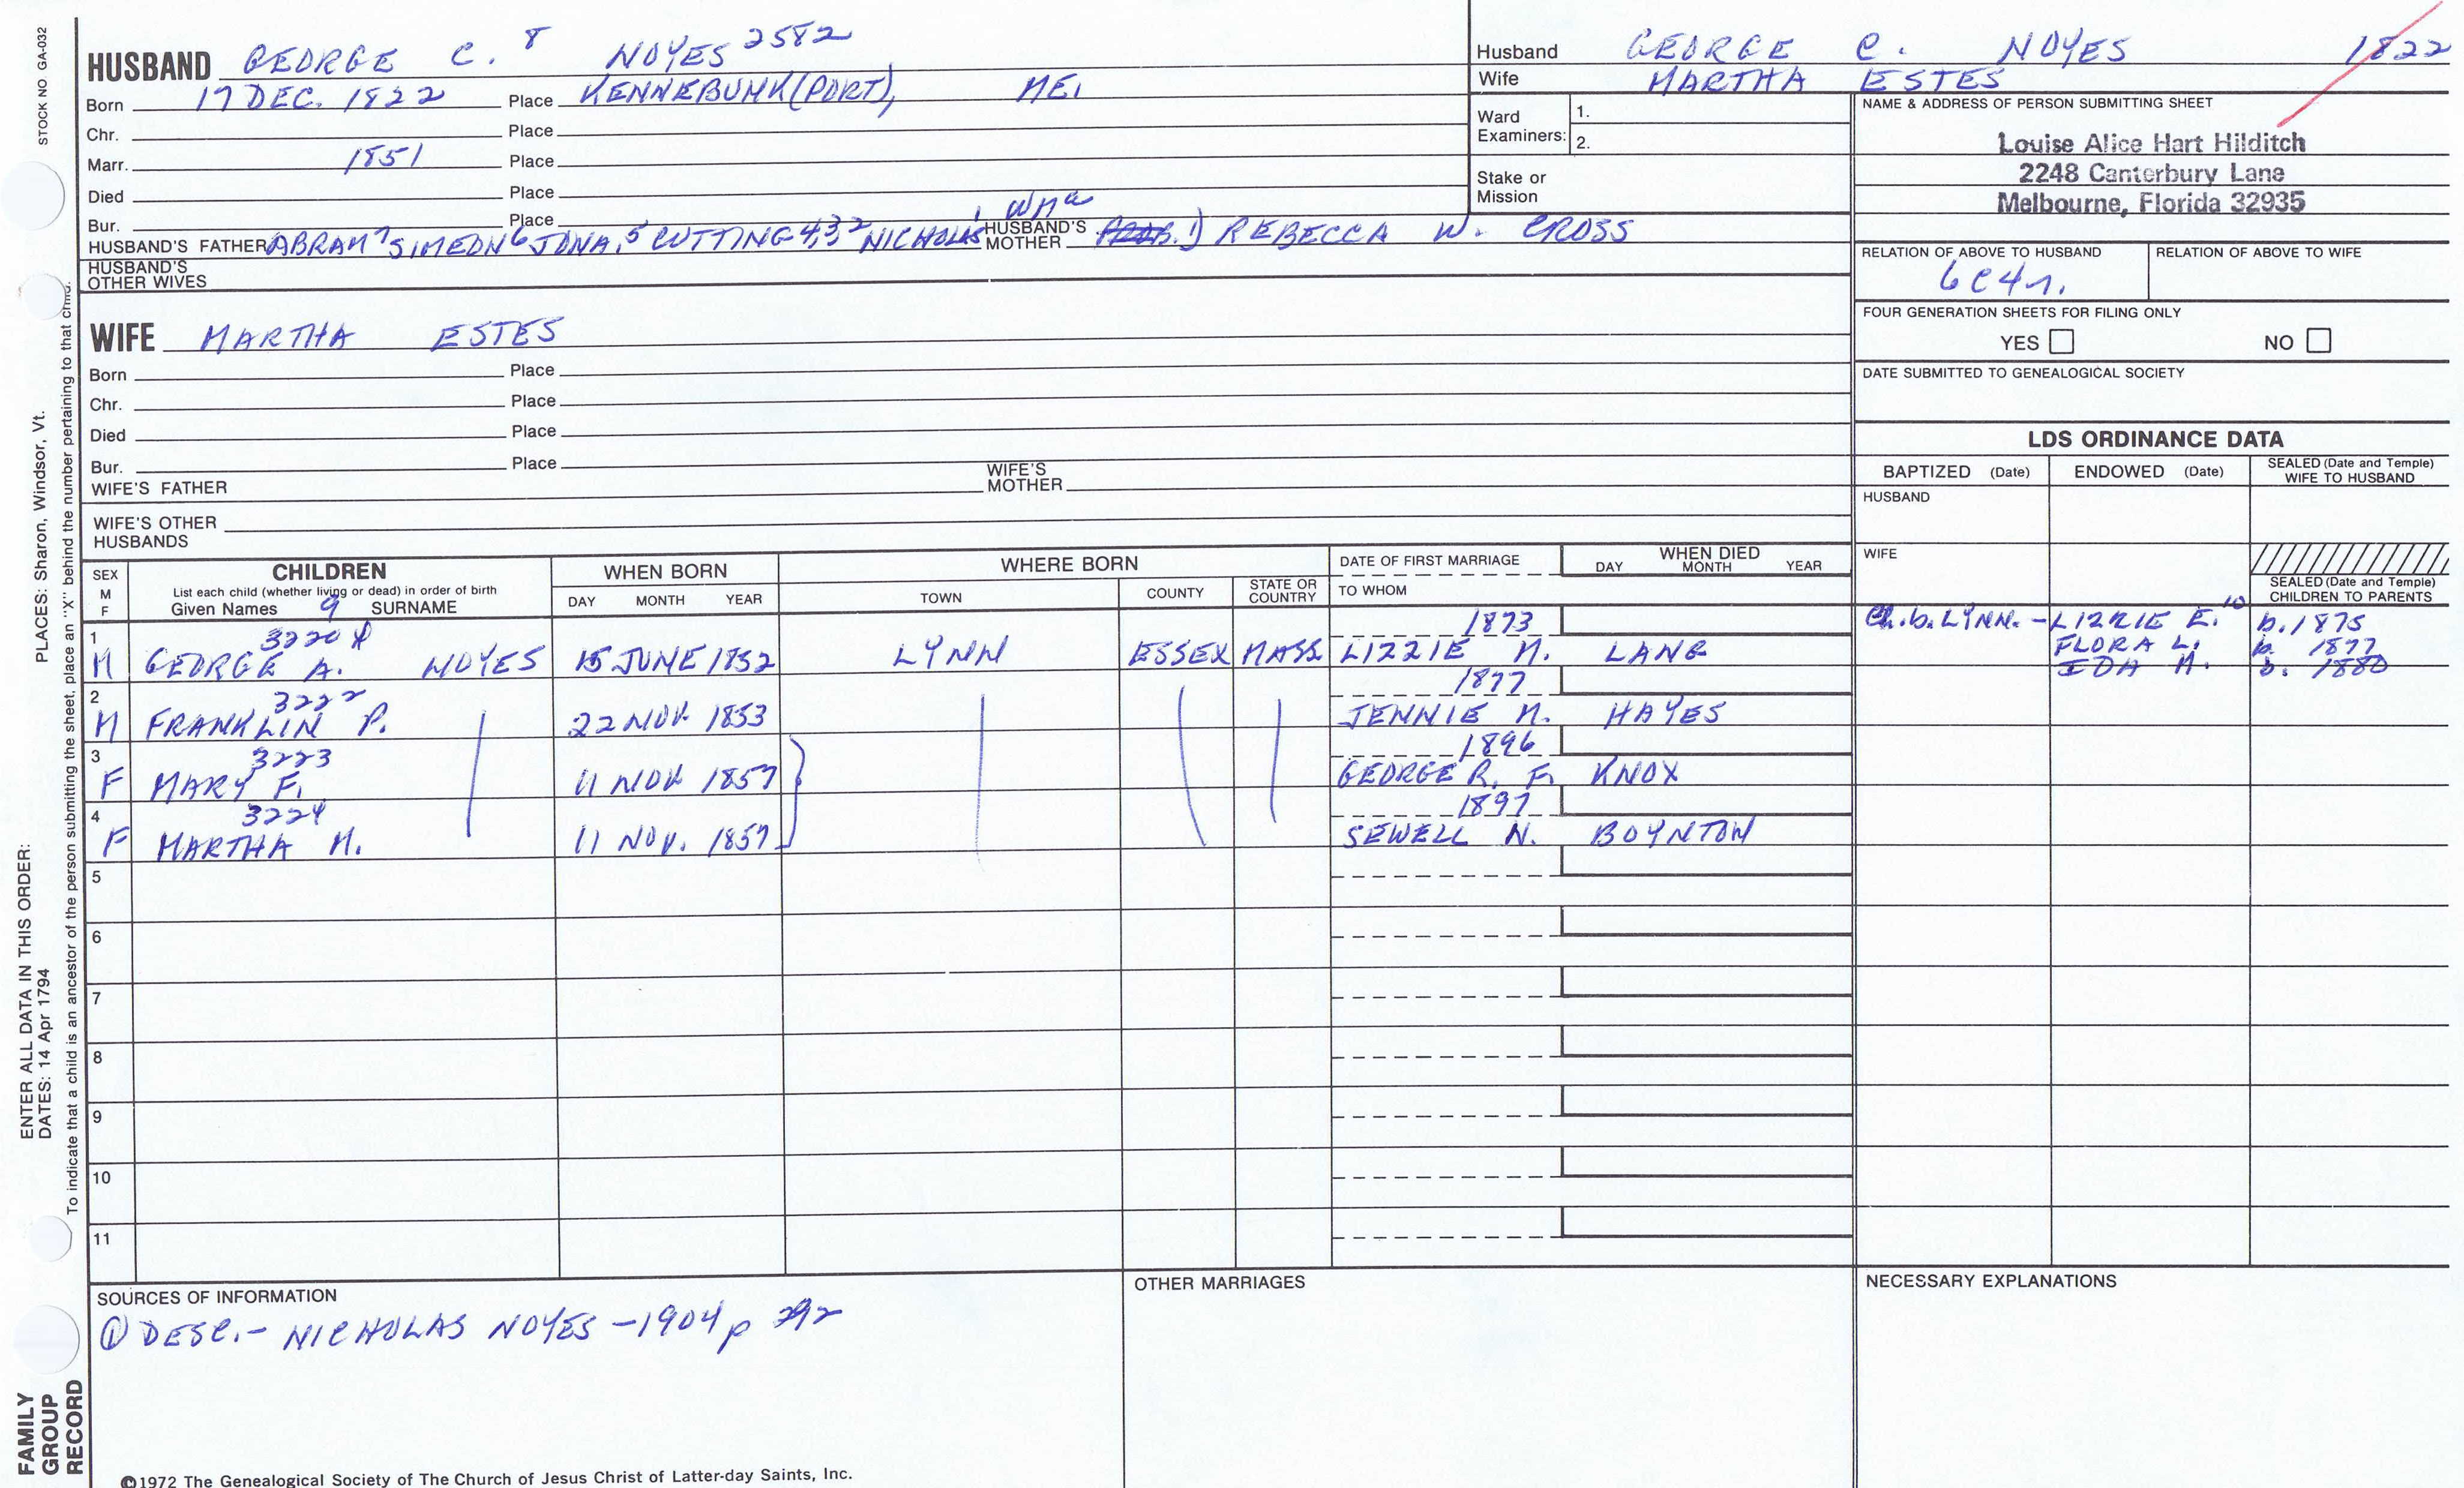 HUSBAND GEORGE C. 8 NOYES 2582
Born 17 DEC. 1822 Place KENNEBUNK(PORT), ME.
Chr. Place
Marr. 1851 Place
Died Place
Bur. Place
HUSBAND'S FATHER ABRAM 7 SIMEON 6 JONA. 5 CUTTING 4,3 2 NICHOLAS 1 HUSBAND'S MOTHER 1) REBECCA W. CROSS
HUSBAND'S OTHER WIVES
Husband GEORGE C. NOYES 1822
Wife MARTHA ESTES
Ward Examiners: 1.
2.
Stake or Mission
NAME & ADDRESS OF PERSON SUBMITTING SHEET
Louise Alice Hart Hilditch
2248 Canterbury Lane
Melbourne, Florida 32935
RELATION OF ABOVE TO HUSBAND RELATION OF ABOVE TO WIFE
6C4r.
FOUR GENERATION SHEETS FOR FILING ONLY
YES NO
DATE SUBMITTED TO GENEALOGICAL SOCIETY
WIFE MARTHA ESTES
Born Place
Chr. Place
Died Place
Bur. Place
WIFE'S FATHER WIFE'S MOTHER
WIFE'S OTHER HUSBANDS
LDS ORDINANCE DATA
BAPTIZED (Date) ENDOWED (Date) SEALED (Date and Temple) WIFE TO HUSBAND
HUSBAND
WIFE
SEALED (Date and Temple) CHILDREN TO PARENTS
SEX M F
CHILDREN
List each child (whether living or dead) in order of birth
Given Names 9 SURNAME
WHEN BORN
DAY MONTH YEAR
WHERE BORN
TOWN COUNTY STATE OR COUNTRY
DATE OF FIRST MARRIAGE
TO WHOM
WHEN DIED
DAY MONTH YEAR
1 3220 1873
M GEORGE A. NOYES 15 JUNE 1852 LYNN ESSEX MASS LIZZIE M. LANE
Ch. b. LYNN. - LIZZIE E. 10 b. 1875
FLORA L. b. 1877
IDA M. b. 1880
2 3222 1877
M FRANKLIN P. 22 NOV. 1853 JENNIE M. HAYES
3 3223 1896
F MARY F. 11 NOV 1857 GEORGE R. F. KNOX
4 3224 1897
F MARTHA M. 11 NOV. 1857 SEWELL N. BOYNTON
5
6
7
8
9
10
11
SOURCES OF INFORMATION
① DESC. - NICHOLAS NOYES - 1904 p 292
OTHER MARRIAGES
NECESSARY EXPLANATIONS
©1972 The Genealogical Society of The Church of Jesus Christ of Latter-day Saints, Inc.
STOCK NO GA-032
PLACES: Sharon, Windsor, Vt.
ENTER ALL DATA IN THIS ORDER:
DATES: 14 Apr 1794
To indicate that a child is an ancestor of the person submitting the sheet, place an "X" behind the number pertaining to that child.
FAMILY GROUP RECORD